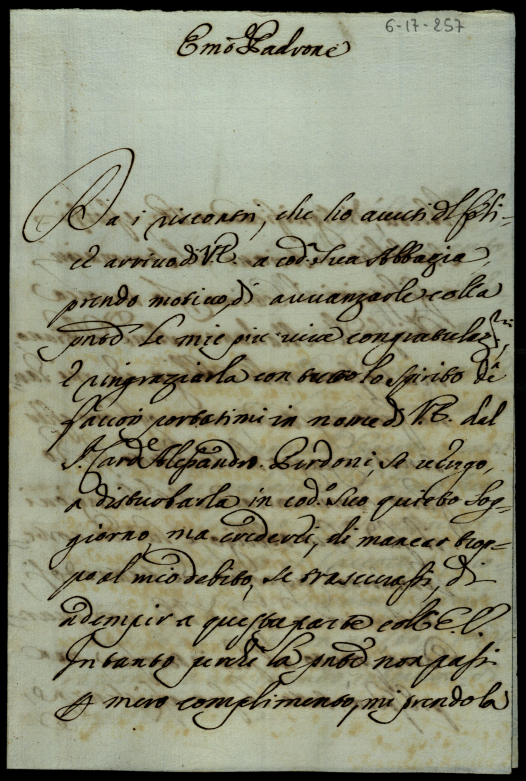 6-17-257
Emo Padrone
Da i riscontri, che ho avuti del feli-
ce arrivo di V.E. a cod.a Sua Abbazia,
prendo motivo, di avvanzarle colla
pnte le mie più vive congratulaz.ni,
e ringraziarla con tutto lo spirito de
favori portatimi in nome di V.E. dal
S.r Card.e Alessandro. Perdoni, se vengo,
a disturbarla in cod.o suo quieto sog-
giorno, ma crederei, di mancar trop-
po al mio debito, se trascurassi, di
adempir a questa parte coll'E.V.
Intanto perche la pnte non passi
p mero complimento, mi prendo la